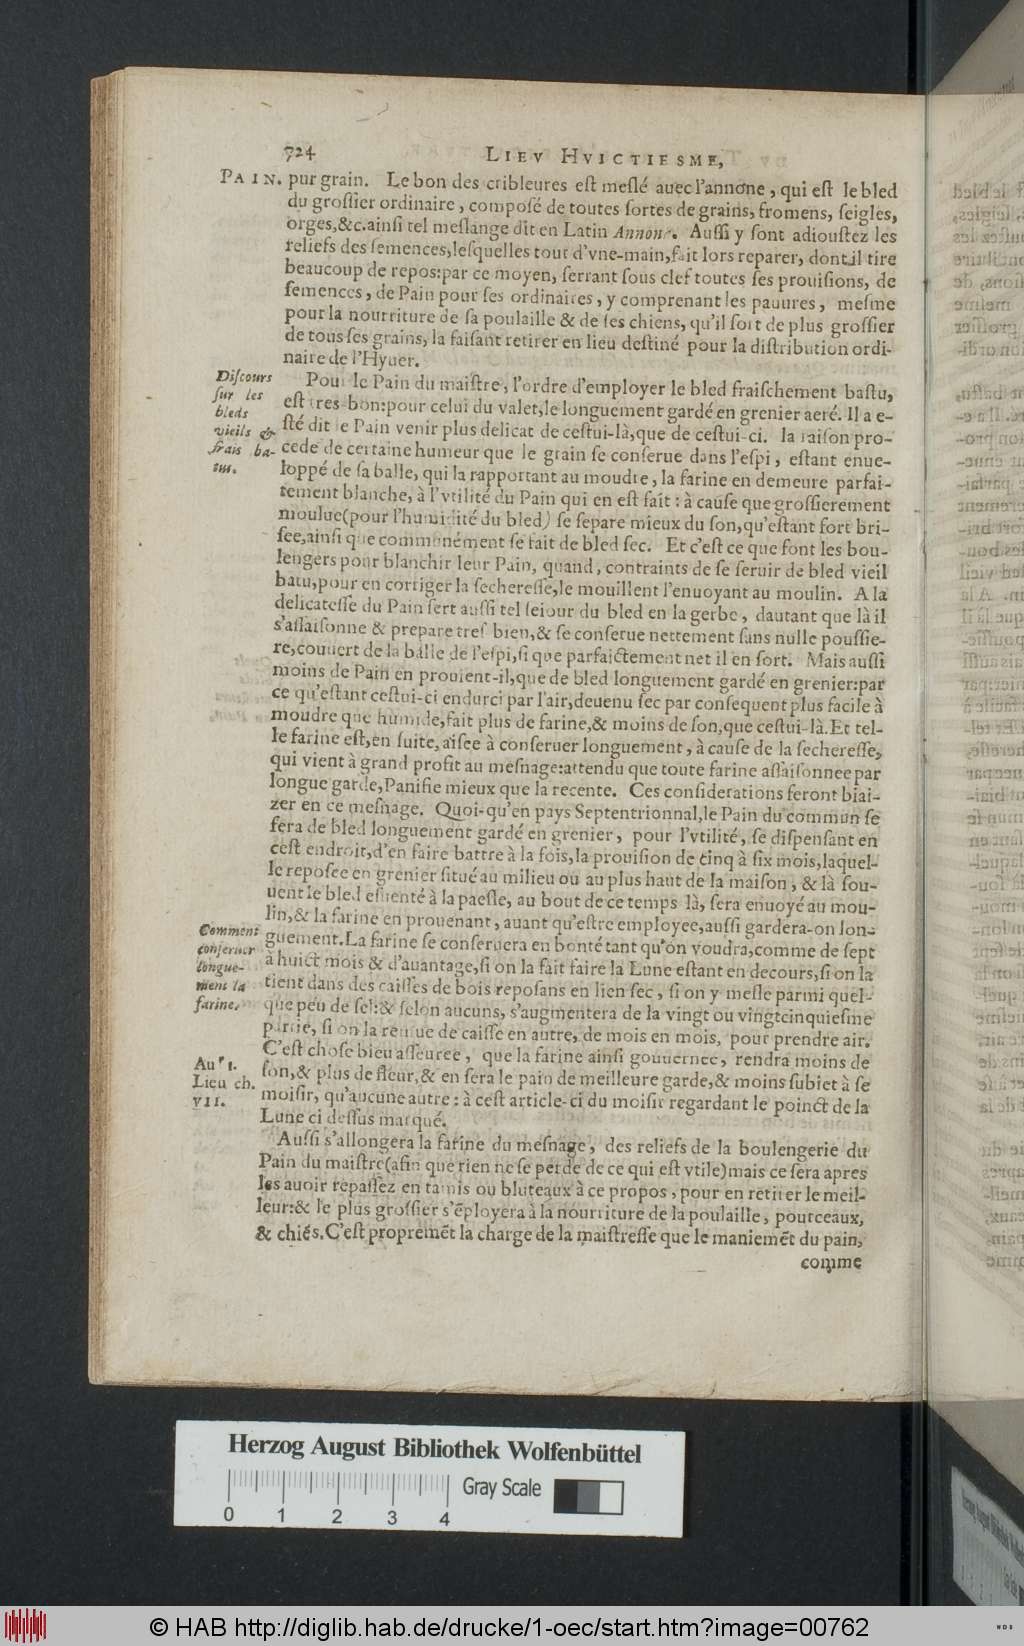 724 LIEV HVICTIESME,
PAIN. pur grain. Le bon des cribleures eſt meſlé auec l'annone, qui eſt le bled
du groſſier ordinaire, compoſé de toutes ſortes de grains, fromens, ſeigles,
orges,&c.ainſi tel meſlange dit en Latin Annone. Auſſi y ſont adiouſtez les
reliefs des ſemences,leſquelles tout d'vne-main,fait lors reparer, dont il tire
beaucoup de repos:par ce moyen, ſerrant ſous clef toutes ſes prouiſions, de
ſemences, de Pain pour ſes ordinaires, y comprenant les pauures, meſme
pour la nourriture de ſa poulaille & de ſes chiens, qu'il ſort de plus groſſier
de tous ſes grains, la faiſant retirer en lieu deſtiné pour la diſtribution ordi-
naire de l'Hyuer.
Diſcours
ſur les
bleds
vieils &
frais ba-
tus.
Pour le Pain du maiſtre, l'ordre d'employer le bled fraiſchement baſtu,
eſt tres-bon:pour celui du valet,le longuement gardé en grenier aeré. Il a e-
ſté dit le Pain venir plus delicat de ceſtui-là,que de ceſtui-ci. la raiſon pro-
cede de certaine humeur que le grain ſe conſerue dans l'eſpi, eſtant enue-
loppé de ſa balle, qui la rapportant au moudre, la farine en demeure parfai-
tement blanche, à l'vtilité du Pain qui en eſt fait : à cauſe que groſſierement
moulue(pour l'humidité du bled) ſe ſepare mieux du ſon,qu'eſtant fort bri-
ſee,ainſi que communément ſe fait de bled ſec. Et c'eſt ce que font les bou-
lengers pour blanchir leur Pain, quand, contraints de ſe ſeruir de bled vieil
batu,pour en corriger la ſechereſſe,le mouillent l'enuoyant au moulin. A la
delicateſſe du Pain ſert auſſi tel ſeiour du bled en la gerbe, dautant que là il
s'aſſaiſonne & prepare treſ bien,& ſe conſerue nettement ſans nulle pouſſie-
re,couuert de la balle de l'eſpi,ſi que parfaictement net il en ſort. Mais auſſi
moins de Pain en prouient-il,que de bled longuement gardé en grenier:par
ce qu'eſtant ceſtui-ci endurci par l'air,deuenu ſec par conſequent plus facile à
moudre que humide,fait plus de farine,& moins de ſon,que ceſtui-là.Et tel-
le farine eſt,en ſuite, aiſee à conſeruer longuement, à cauſe de la ſechereſſe,
qui vient à grand profit au meſnage:attendu que toute farine aſſaiſonnee par
longue garde,Panifie mieux que la recente. Ces conſiderations feront biai-
zer en ce meſnage. Quoi-qu'en pays Septentrionnal,le Pain du commun ſe
fera de bled longuement gardé en grenier, pour l'vtilité, ſe diſpenſant en
ceſt endroit,d'en faire battre à la fois,la prouiſion de cinq à ſix mois,laquel-
le repoſee en grenier ſitué au milieu ou au plus haut de la maiſon, & là ſou-
uent le bled eſuenté à la paeſle, au bout de ce temps là, ſera enuoyé au mou-
lin,& la farine en prouenant, auant qu'eſtre employee,auſſi gardera-on lon-
Comment
conſeruer
longue-
ment la
farine.
guement.La farine ſe conſeruera en bonté tant qu'on voudra,comme de ſept
à huict mois & d'auantage,ſi on la fait faire la Lune eſtant en decours,ſi on la
tient dans des caiſſes de bois repoſans en lieu ſec, ſi on y meſle parmi quel-
que peu de ſel:& ſelon aucuns, s'augmentera de la vingt ou vingtcinquieſme
partie, ſi on la remue de caiſſe en autre, de mois en mois, pour prendre air.
C'eſt choſe bieu aſſeuree, que la farine ainſi gouuernee, rendra moins de
Au 1.
Lieu ch.
VII.
ſon,& plus de fleur,& en ſera le pain de meilleure garde,& moins ſubiet à ſe
moiſir, qu'aucune autre : à ceſt article-ci du moiſir regardant le poinct de la
Lune ci deſſus marqué.
Auſſi s'allongera la farine du meſnage, des reliefs de la boulengerie du
Pain du maiſtre(afin que rien ne ſe perde de ce qui eſt vtile)mais ce ſera apres
les auoir repaſſez en tamis ou bluteaux à ce propos, pour en retirer le meil-
leur:& le plus groſſier s'ẽployera à la nourriture de la poulaille, pourceaux,
& chiẽs.C'eſt propremẽt la charge de la maiſtreſſe que le maniemẽt du pain,
comme
Herzog August Bibliothek Wolfenbüttel
Gray Scale
0 1 2 3 4
© HAB http://diglib.hab.de/drucke/1-oec/start.htm?image=00762